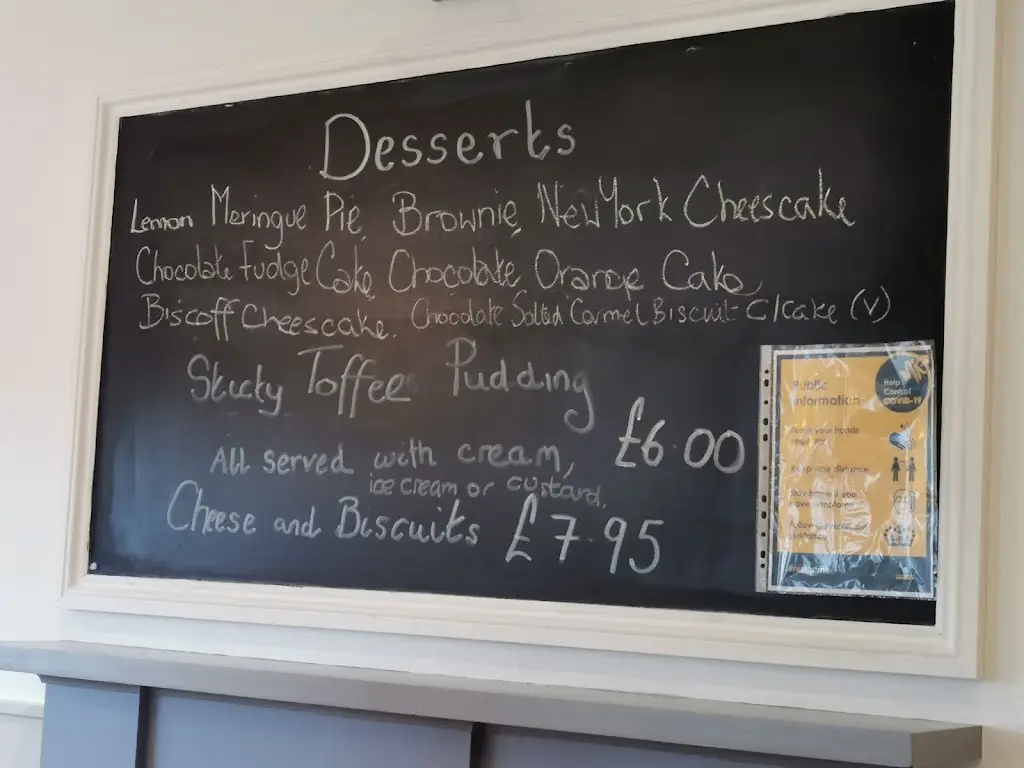 Desserts
Lemon Meringue Pie, Brownie, New York Cheescake
Chocolate Fudge Cake, Chocolate Orange Cake,
Biscoff Cheescake. Chocolate Salted Carmel Biscuit C/Cake (V)
Sticty Toffee Pudding
£6.00
All served with cream,
ice cream or custard.
Cheese and Biscuits £7.95
Public
Information
Help
Control
COVID-19
Wash your hands
regularly
Keep your distance
Stay home if you
have symptoms
Follow government
guidance